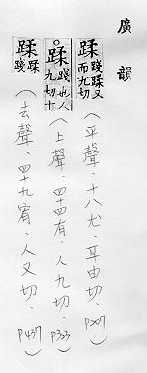 廣韻
蹂 踐蹂又而九切（平聲．十八尤．耳由切．P207）
。蹂 踐也人九切十（上聲．四十四有．人九切．P323）
蹂 蹂踐（去聲．四十九宥．人又切．P437）